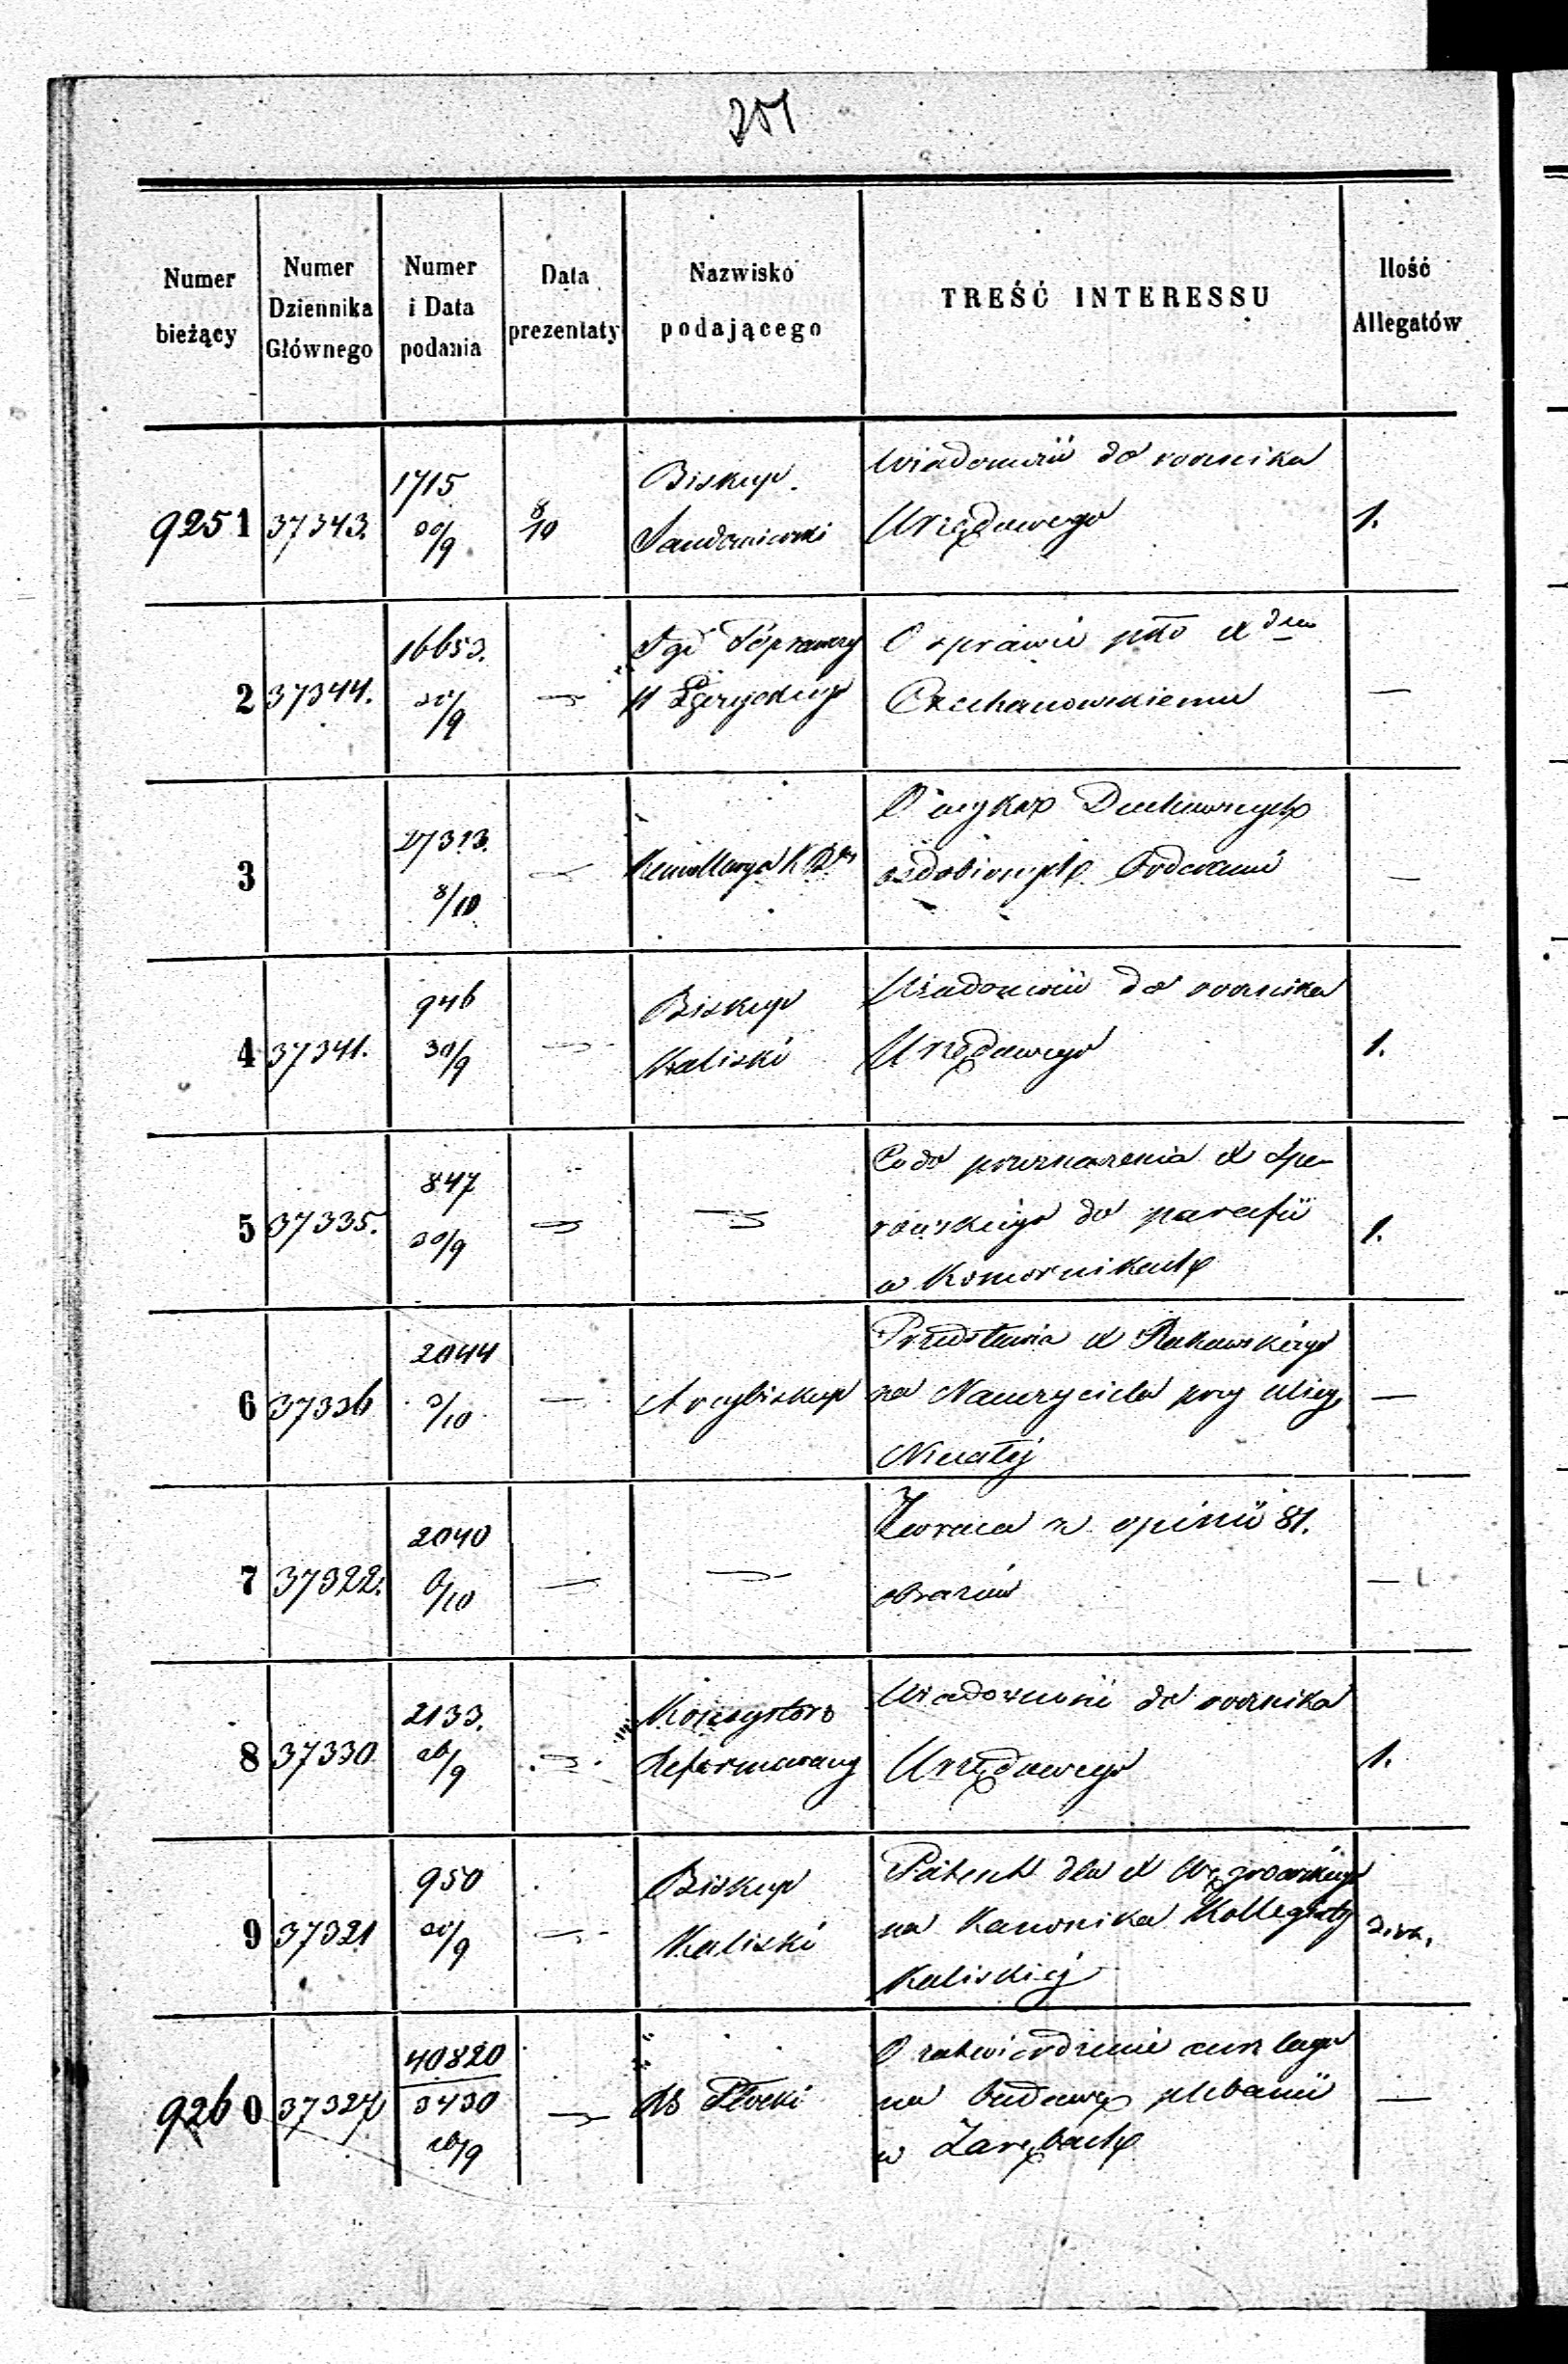 251
Numer bieżący | Numer Dziennika Głównego | Numer i Data podania | Data prezentaty | Nazwisko podającego | TREŚĆ INTERESSU | Ilość Allegatów
9251 | 37343. | 1715 30/9 | 8/10 | Biskup Sandomierski | Wiadomość do rocznika
Urzędowego | 1.
2 | 37344. | 16653. 30/9 | — | Sąd Poprawczy | O sprawie pko X
Czechanowskiemu | —
3 | 27313. 8/10 | — | Kancellarya | O wykaz Duchownych
ozdobionych Orderami | —
4 | 37341. | 946 30/9 | — | Biskup Kaliski | Wiadomość do rocznika
Urzędowego | 1.
5 | 37335. | 847 30/9 | — | — | Co do przeznaczenia X
do parafii
w Komornikach | 1.
6 | 37336 | 2044 3/10 | — | Arcybiskup | Przedstawia X Rakowskiego
na Nauczyciela przy ulicy
Niecałej | —
7 | 37322. | 2040 6/10 | — | — | Zwraca z opinii 81.
obrazów | —
8 | 37330 | 2133. 26/9 | — | Konsystorz Reformowany | Wiadomość do rocznika
Urzędowego | 1.
9 | 37321 | 950 30/9 | — | Biskup Kaliski | Patent dla X Węgrowskiego
na Kanonika Kollegiaty
Kaliskiej
9260 | 37327 | 40820 3430 26/9 | — | Płocki | O zatwierdzenie anszlagu
na budowę plebanii
w Zarębach | —